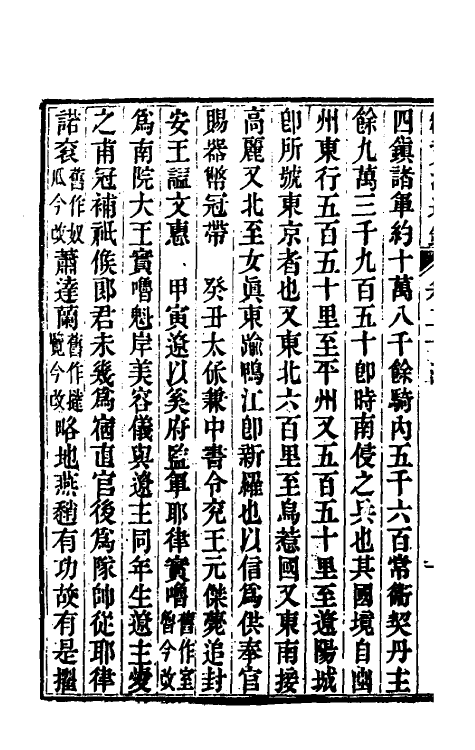 四鎮諸軍約十萬八千餘騎內五千六百常衛契丹主
餘九萬三千九百五十卽時南侵之兵也其國境自幽
州東行五百五十里至平州又五百五十里至遼陽城
卽所號東京者也又東北六百里至烏惹國又東南接
高麗又北至女眞東踰鴨江卽新羅也以信爲供奉官
賜器幣冠帶　癸丑太保兼中書令兖王元傑薨追封
安王諡文惠　甲寅遼以奚府監軍耶律實嚕舊作室魯今改
爲南院大王實嚕魁岸美容儀與遼主同年生遼主愛
之甫冠補祗候郎君未幾爲宿直官後爲隊帥從耶律
諾袞舊作奴瓜今改蕭達蘭舊作撻覽今改略地燕趙有功故有是擢